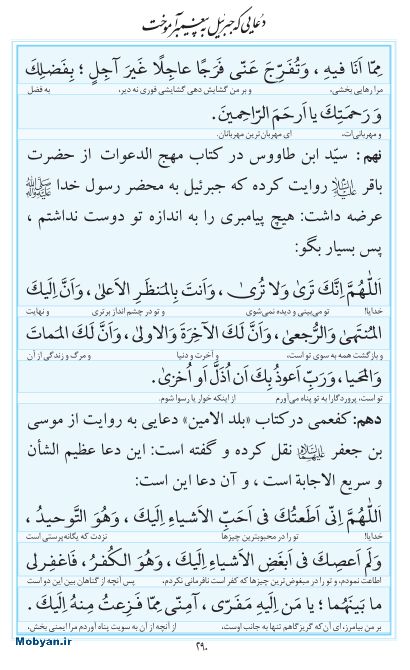 دعایی که جبرئیل به پیغمبر آموخت
مِمّا اَنَا فیهِ ، وَتُفَرِّجَ عَنّی فَرَجًا عاجِلًا غَیرَ آجِلٍ ؛ بِفَضلِكَ
مرا رهایی بخشی، و بر من گشایش دهی گشایشی فوری نه دیر، به فضل
وَ رَحمَتِكَ یا اَرحَمَ الرّاحِمینَ.
و مهربانی‌ات، ای مهربان‌ترین مهربانان.
نهم: سیّد ابن طاووس در کتاب مهج الدعوات از حضرت
باقر علیه‌السلام روایت کرده که جبرئیل به محضر رسول خدا صلی‌الله‌علیه‌وآله
عرضه داشت: هیچ پیامبری را به اندازه تو دوست نداشتم ،
پس بسیار بگو:
اَللّٰهُمَّ اِنَّكَ تَریٰ وَلا تُریٰ ، وَاَنتَ بِالمَنظَرِ الاَعلیٰ، وَاَنَّ اِلَیكَ
خدایا! تو می‌بینی و دیده نمی‌شوی و تو در چشم انداز برتری و نهایت
المُنتَهیٰ وَالرُّجعیٰ، وَاَنَّ لَكَ الآخِرَةَ وَالاولیٰ، وَاَنَّ لَكَ المَماتَ
و بازگشت همه به سوی تو است، و آخرت و دنیا و مرگ و زندگی از آن
وَالمَحیا، وَرَبِّ اَعوذُ بِكَ اَن اُذَلَّ اَو اُخزیٰ.
تو است، پروردگارا به تو پناه می‌آورم از اینکه خوار یا رسوا شوم.
دهم: کفعمی درکتاب «بلد الامین» دعایی به روایت از موسی بن
جعفر علیهماالسلام نقل کرده و گفته است: این دعا عظیم الشأن
و سریع الاجابة است ، و آن دعا این است:
اَللّٰهُمَّ اِنّی اَطَعتُكَ فی اَحَبِّ الاَشیاءِ اِلَیكَ ، وَهُوَ التَّوحیدُ ،
خدایا! تو را در محبوبترین چیزها نزدت که یگانه‌پرستی است
وَلَم اَعصِكَ فی اَبغَضِ الاَشیاءِ اِلَیكَ ، وَهُوَ الكُفرُ، فَاغفِر لی
اطاعت نمودم، و تو را در مبغوض‌ترین چیزها که کفر است نافرمانی نکردم، پس آنچه از گناهان بین این دو است
ما بَینَهُما ؛ یا مَن اِلَیهِ مَفَرّی ، آمِنّی مِمّا فَزِعتُ مِنهُ اِلَیكَ .
بر من بیامرز، ای آن‌که گریزگاهم تنها به جانب اوست، از آنچه از آن به سویت پناه آوردم مرا ایمنی بخش،
۲۹۰
Mobyan.ir